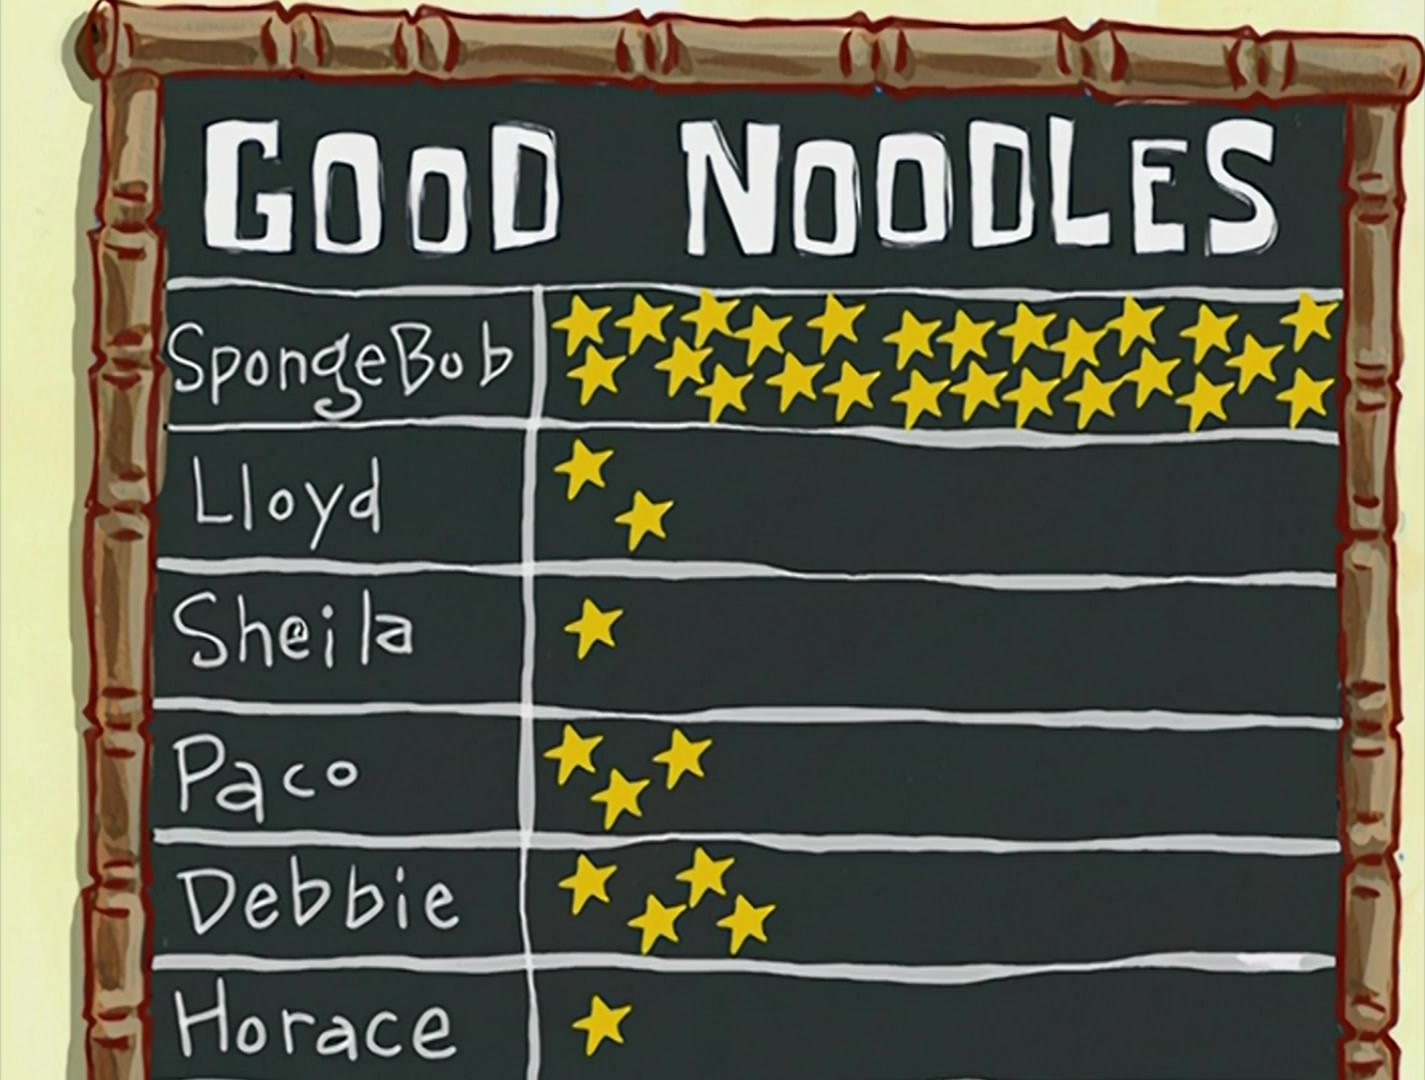 GOOD NOODLES
SpongeBob
Lloyd
Sheila
Paco
Debbie
Horace